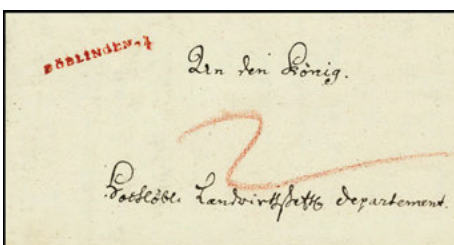 BÖBLINGEN
An den König.
2
Hochlöbl. Landwirthschafts departement.